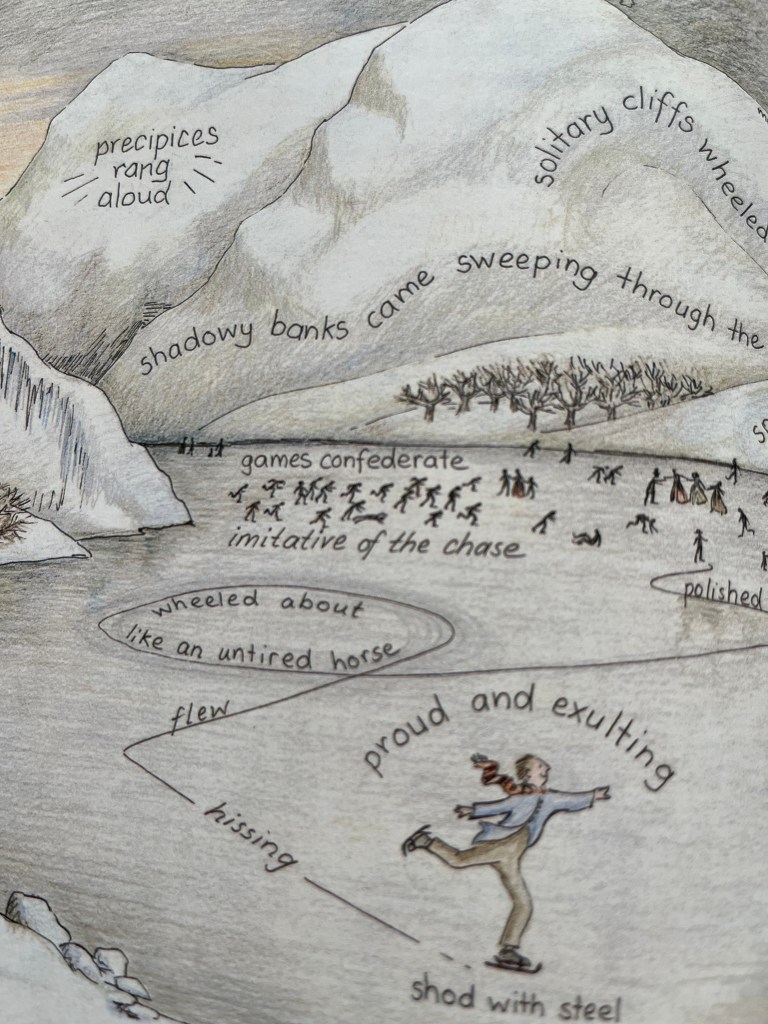 precipices
rang
aloud
solitary cliffs wheeled
shadowy banks came sweeping through the
games confederate
imitative of the chase
polished
wheeled about
like an untired horse
flew
proud and exulting
hissing
shod with steel